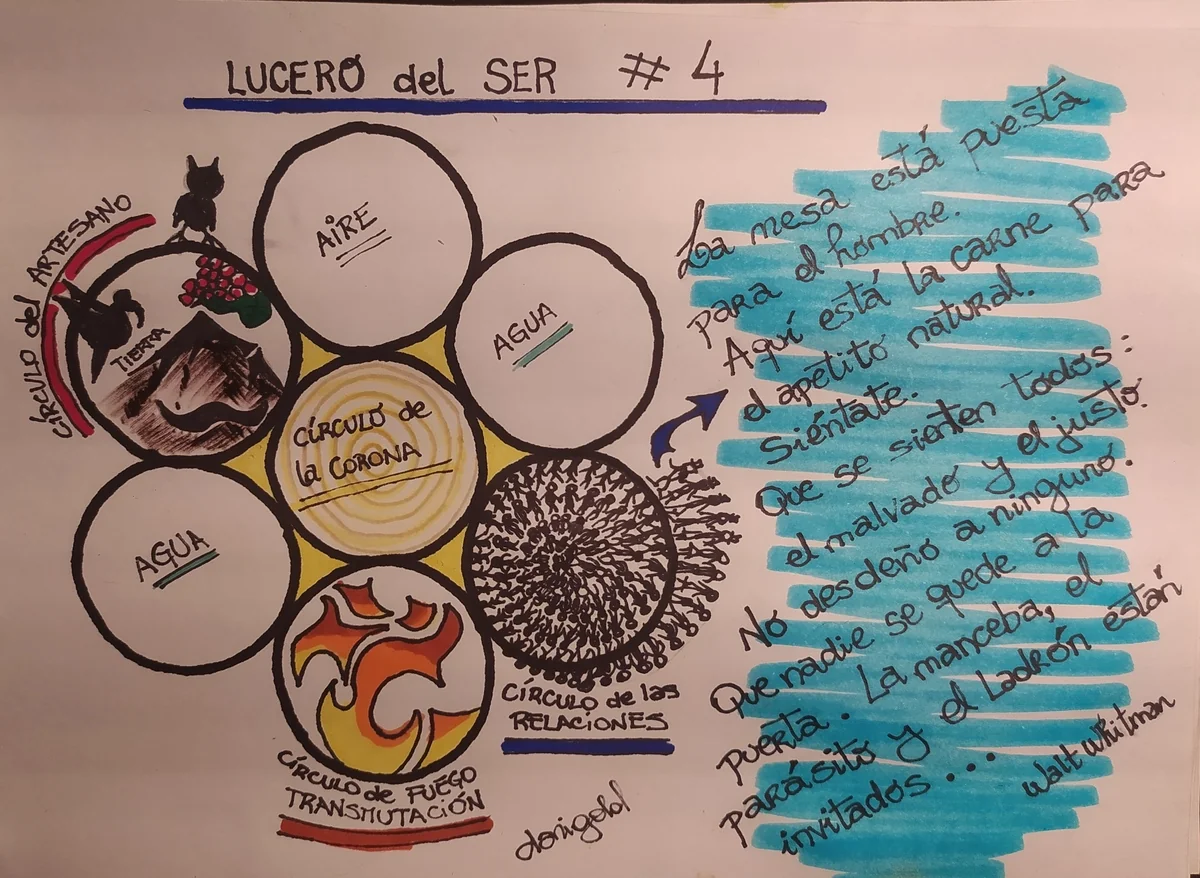 LUCERO del SER # 4
CÍRCULO del ARTESANO
AIRE
TIERRA
AGUA
CÍRCULO de
la CORONA
AGUA
CÍRCULO de las
RELACIONES
CÍRCULO de FUEGO
TRANSMUTACIÓN
La mesa está puesta
para el hombre.
Aquí está la carne para
el apetito natural.
Siéntate.
Que se sienten todos:
el malvado y el justo.
No desdeño a ninguno.
Que nadie se quede a la
puerta. La manceba, el
parásito y el ladrón están
invitados...
Walt Whitman